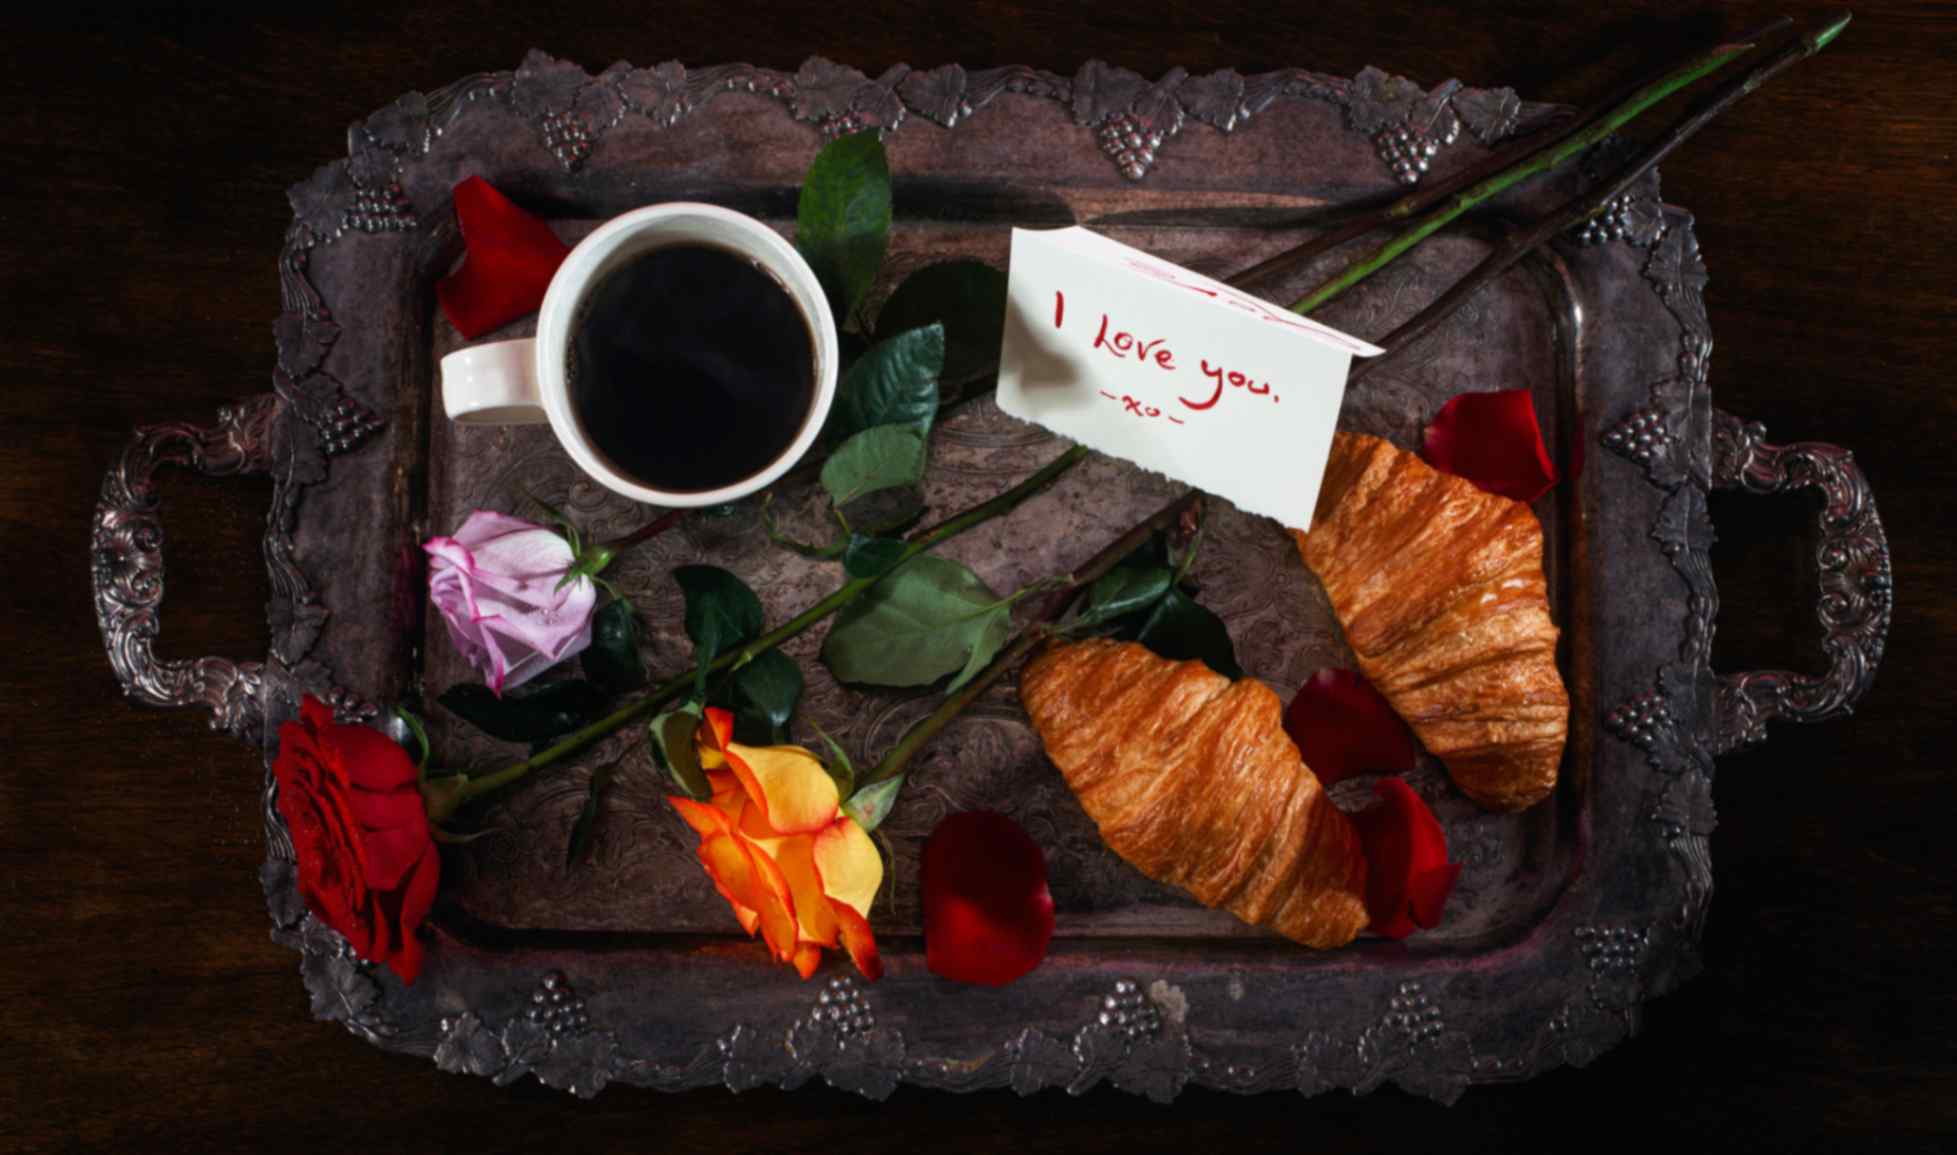 I Love you.
-xo-